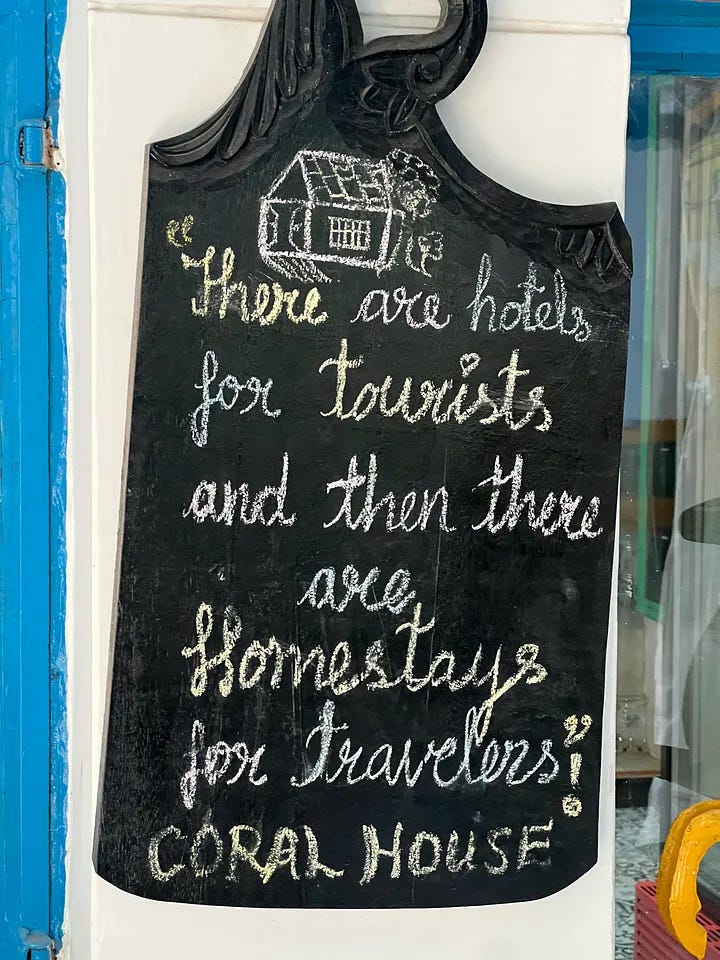 "There are hotels
for tourists
and then there
are
Homestays
for travelers"!
CORAL HOUSE